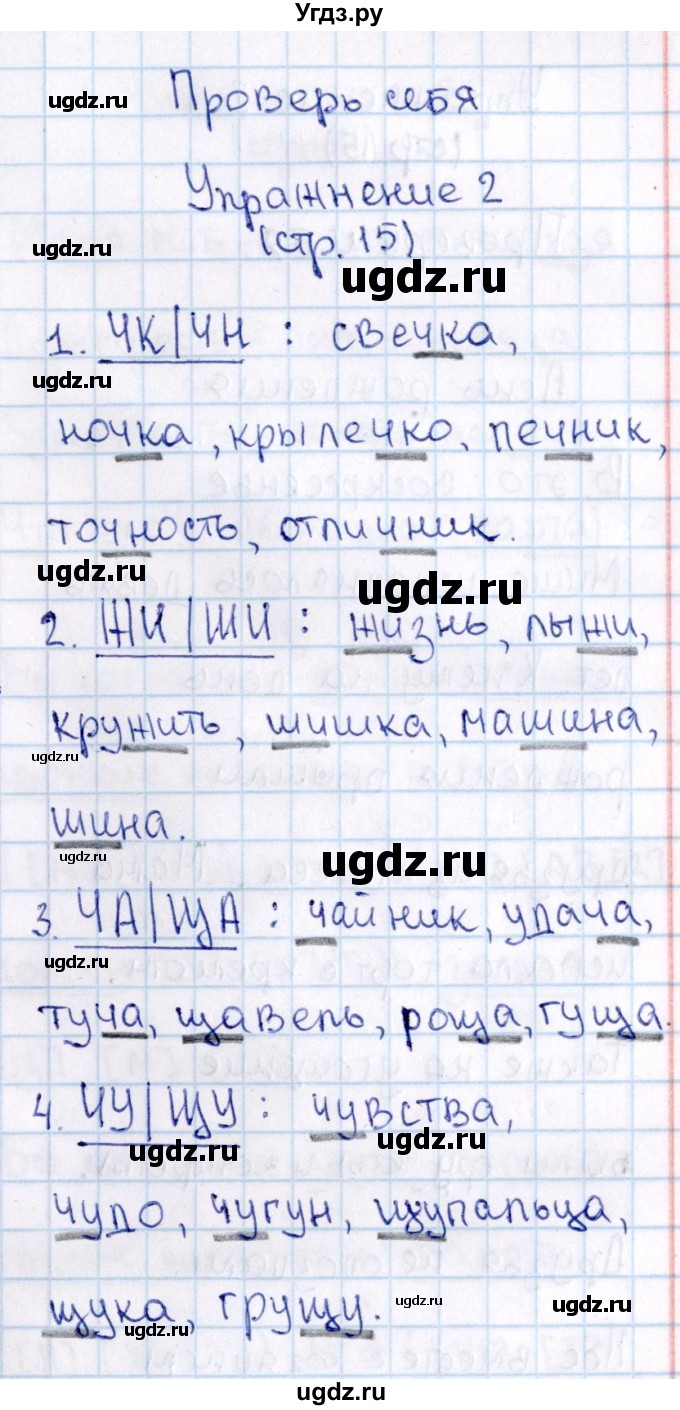 Угдз.ру
ugdz.ru
Проверь себя
Упражнение 2
ugdz.ru
(стр. 15)
ugdz.ru
1. ЧК|ЧН : свечка,
ugdz.ru
ночка, крылечко, печник,
точность, отличник.
ugdz.ru
ugdz.ru
2. ЖИ|ШИ : жизнь, лыжи,
кружить, шишка, машина,
ugdz.ru
шина.
ugdz.ru
ugdz.ru
3. ЧА|ЩА : чайник, удача,
ugdz.ru
туча, щавель, роща, гуща.
4. ЧУ|ЩУ : чувства,
ugdz.ru
ugdz.ru
чудо, чугун, щупальца,
щука, грущу.
ugdz.ru
ugdz.ru
ugdz.ru
ugdz.ru